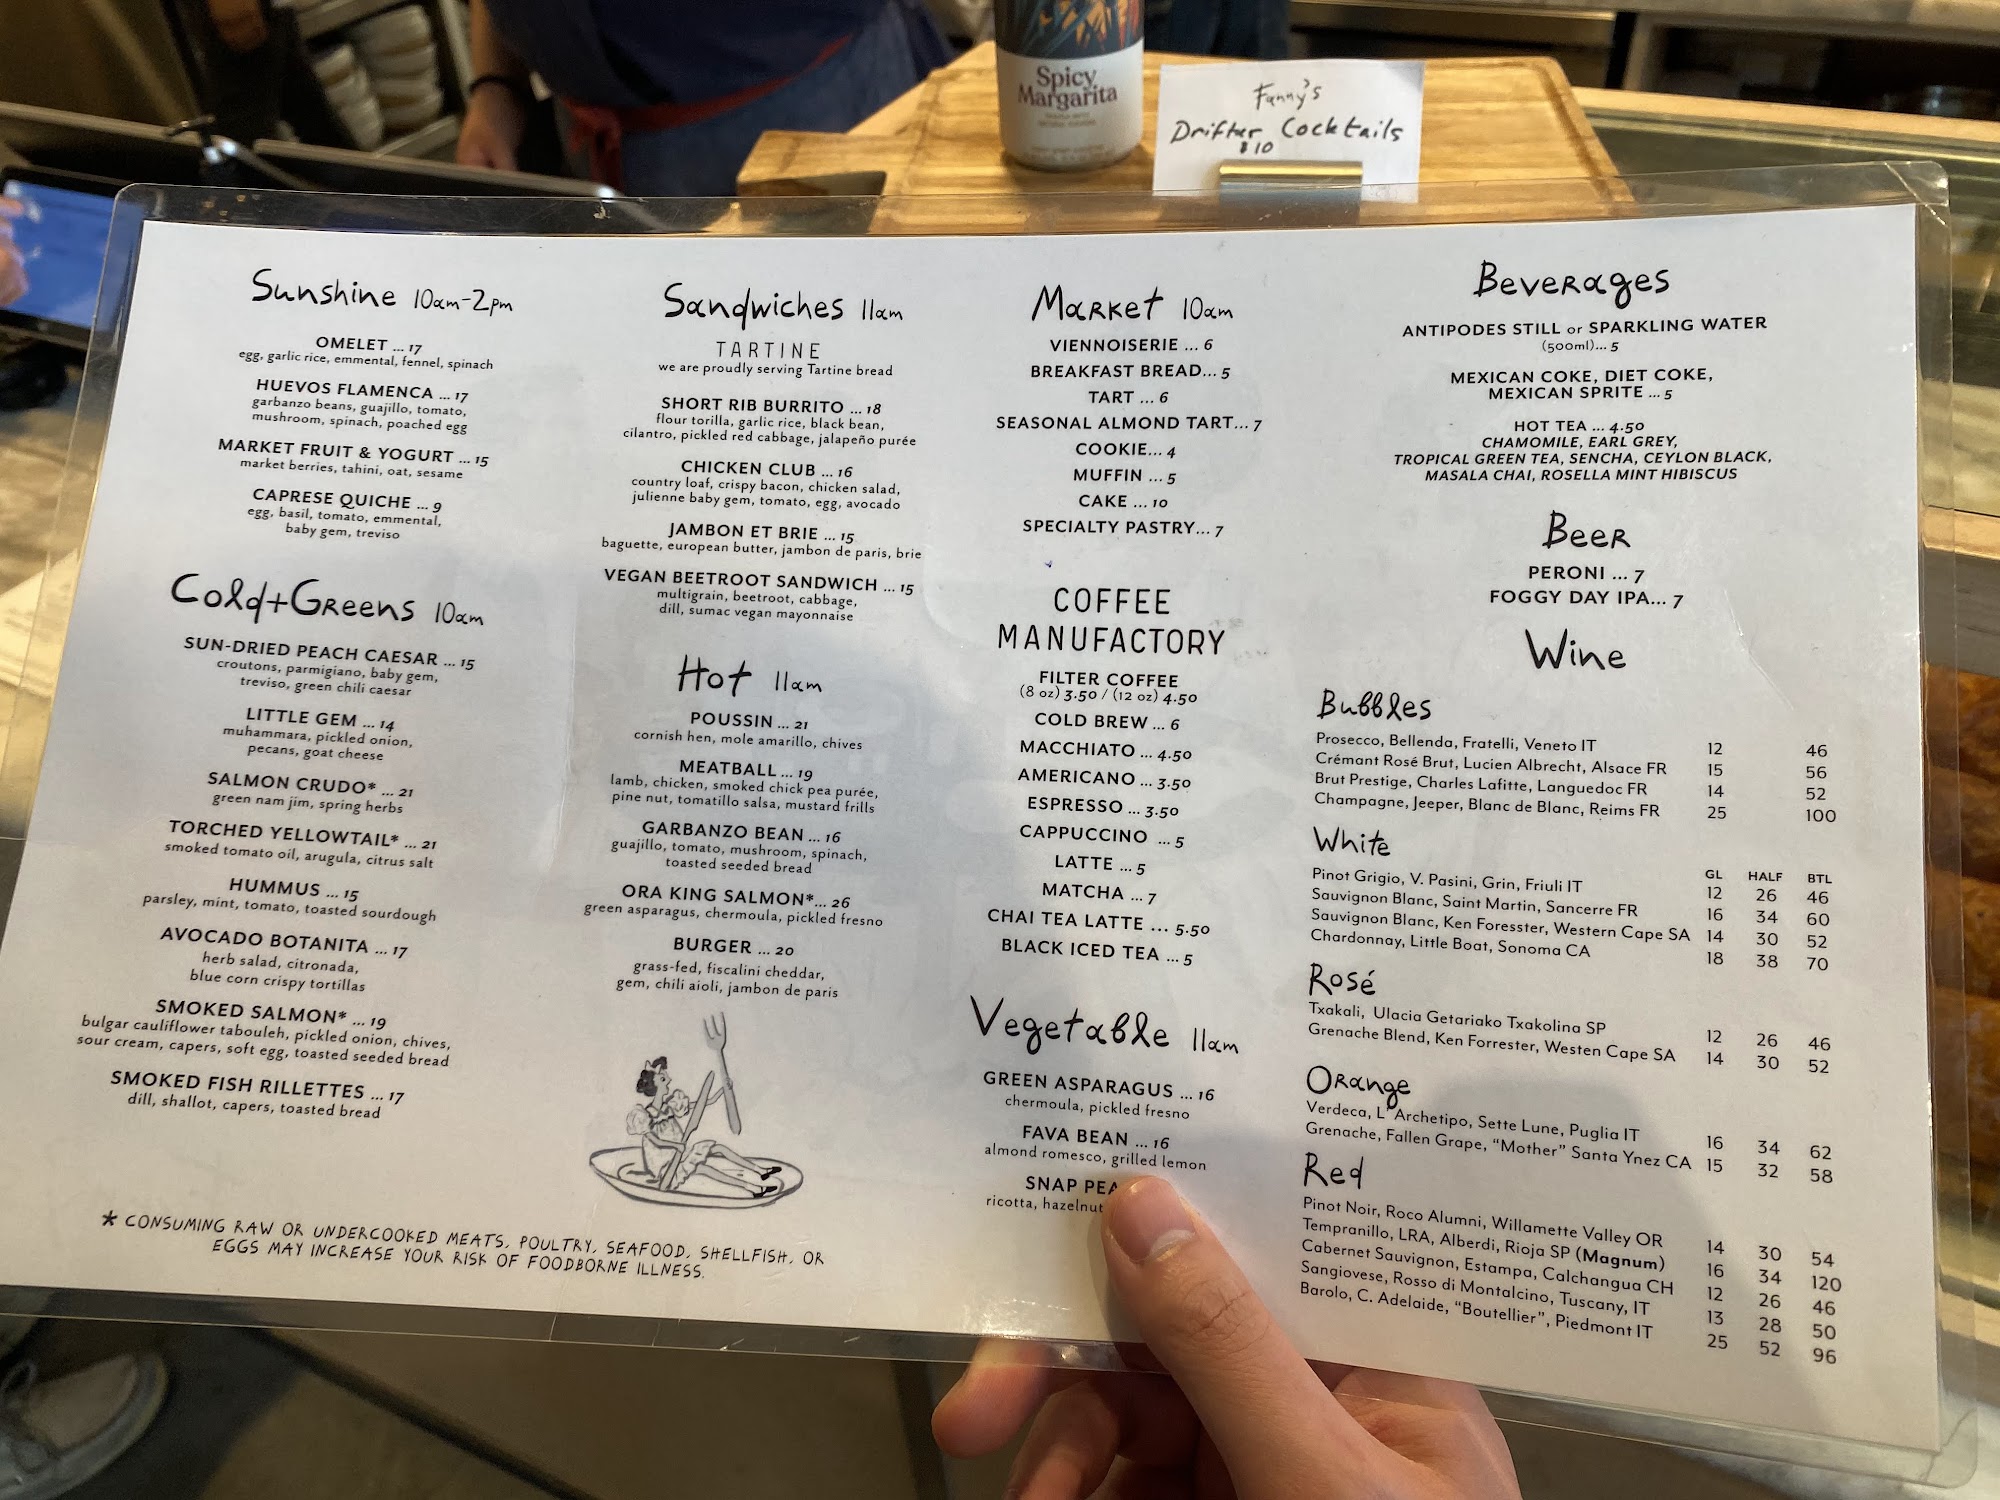 Spicy
Margarita
Fanny's
Drifter Cocktails
$10
Sunshine 10am-2pm
OMELET ... 17
egg, garlic rice, emmental, fennel, spinach
HUEVOS FLAMENCA ... 17
garbanzo beans, guajillo, tomato,
mushroom, spinach, poached egg
MARKET FRUIT & YOGURT ... 15
market berries, tahini, oat, sesame
CAPRESE QUICHE ... 9
egg, basil, tomato, emmental,
baby gem, treviso
Cold+Greens 10am
SUN-DRIED PEACH CAESAR ... 15
croutons, parmigiano, baby gem,
treviso, green chili caesar
LITTLE GEM ... 14
muhammara, pickled onion,
pecans, goat cheese
SALMON CRUDO* ... 21
green nam jim, spring herbs
TORCHED YELLOWTAIL* ... 21
smoked tomato oil, arugula, citrus salt
HUMMUS ... 15
parsley, mint, tomato, toasted sourdough
AVOCADO BOTANITA ... 17
herb salad, citronada,
blue corn crispy tortillas
SMOKED SALMON* ... 19
bulgar cauliflower tabouleh, pickled onion, chives,
sour cream, capers, soft egg, toasted seeded bread
SMOKED FISH RILLETTES ... 17
dill, shallot, capers, toasted bread
Sandwiches 11am
TARTINE
we are proudly serving Tartine bread
SHORT RIB BURRITO ... 18
flour torilla, garlic rice, black bean,
cilantro, pickled red cabbage, jalapeño purée
CHICKEN CLUB ... 16
country loaf, crispy bacon, chicken salad,
julienne baby gem, tomato, egg, avocado
JAMBON ET BRIE ... 15
baguette, european butter, jambon de paris, brie
VEGAN BEETROOT SANDWICH ... 15
multigrain, beetroot, cabbage,
dill, sumac vegan mayonnaise
Hot 11am
POUSSIN ... 21
cornish hen, mole amarillo, chives
MEATBALL ... 19
lamb, chicken, smoked chick pea purée,
pine nut, tomatillo salsa, mustard frills
GARBANZO BEAN ... 16
guajillo, tomato, mushroom, spinach,
toasted seeded bread
ORA KING SALMON*... 26
green asparagus, chermoula, pickled fresno
BURGER ... 20
grass-fed, fiscalini cheddar,
gem, chili aioli, jambon de paris
* CONSUMING RAW OR UNDERCOOKED MEATS, POULTRY, SEAFOOD, SHELLFISH, OR
EGGS MAY INCREASE YOUR RISK OF FOODBORNE ILLNESS.
Market 10am
VIENNOISERIE ... 6
BREAKFAST BREAD... 5
TART ... 6
SEASONAL ALMOND TART... 7
COOKIE... 4
MUFFIN ... 5
CAKE ... 10
SPECIALTY PASTRY... 7
COFFEE
MANUFACTORY
FILTER COFFEE
(8 oz) 3.50 / (12 oz) 4.50
COLD BREW ... 6
MACCHIATO ... 4.50
AMERICANO ... 3.50
ESPRESSO ... 3.50
CAPPUCCINO ... 5
LATTE ... 5
MATCHA ... 7
CHAI TEA LATTE ... 5.50
BLACK ICED TEA ... 5
Vegetable 11am
GREEN ASPARAGUS ... 16
chermoula, pickled fresno
FAVA BEAN ... 16
almond romesco, grilled lemon
SNAP PEA
ricotta, hazelnut
Beverages
ANTIPODES STILL or SPARKLING WATER
(500ml)... 5
MEXICAN COKE, DIET COKE,
MEXICAN SPRITE ... 5
HOT TEA ... 4.50
CHAMOMILE, EARL GREY,
TROPICAL GREEN TEA, SENCHA, CEYLON BLACK,
MASALA CHAI, ROSELLA MINT HIBISCUS
Beer
PERONI ... 7
FOGGY DAY IPA... 7
Wine
Bubbles
Prosecco, Bellenda, Fratelli, Veneto IT 12 46
Crémant Rosé Brut, Lucien Albrecht, Alsace FR 15 56
Brut Prestige, Charles Lafitte, Languedoc FR 14 52
Champagne, Jeeper, Blanc de Blanc, Reims FR 25 100
White
GL HALF BTL
Pinot Grigio, V. Pasini, Grin, Friuli IT 12 26 46
Sauvignon Blanc, Saint Martin, Sancerre FR 16 34 60
Sauvignon Blanc, Ken Foresster, Western Cape SA 14 30 52
Chardonnay, Little Boat, Sonoma CA 18 38 70
Rosé
Txakali, Ulacia Getariako Txakolina SP 12 26 46
Grenache Blend, Ken Forrester, Westen Cape SA 14 30 52
Orange
Verdeca, L' Archetipo, Sette Lune, Puglia IT 16 34 62
Grenache, Fallen Grape, "Mother" Santa Ynez CA 15 32 58
Red
Pinot Noir, Roco Alumni, Willamette Valley OR 14 30 54
Tempranillo, LRA, Alberdi, Rioja SP (Magnum) 16 34 120
Cabernet Sauvignon, Estampa, Calchangua CH 12 26 46
Sangiovese, Rosso di Montalcino, Tuscany, IT 13 28 50
Barolo, C. Adelaide, "Boutellier", Piedmont IT 25 52 96